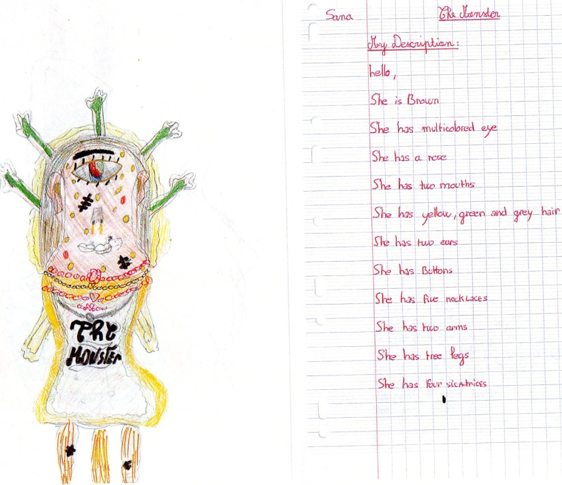 THE
MONSTER
Sana The Monster
My Description:
hello,
She is Brown
She has multicolored eye
She has a nose
She has two mouths
She has yellow, green and grey hair
She has two ears
She has Buttons
She has five necklaces
She has two arms
She has tree legs
She has four sicatrices